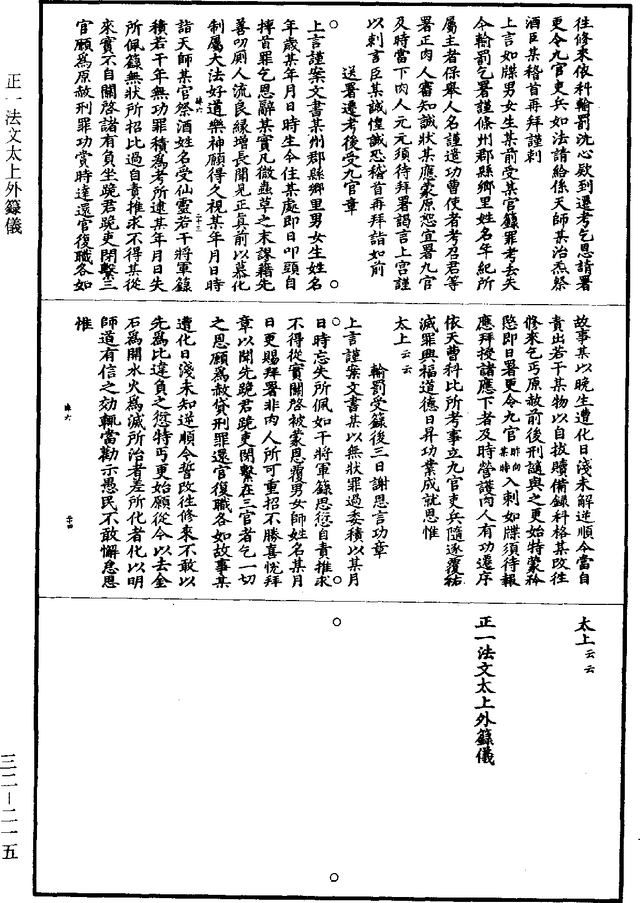 往修來依科輸罰沈心欵到遷考乞恩請署
更令九官吏兵如法請給係天師某治炁祭
酒臣某稽首再拜謹刺
上言如牒男女生某前受某官籙罪考去失
今輸罰乞署謹條州郡縣鄉里姓名年紀所
屬主者保舉人名謹遣功曹使者考召君等
署正肉人審知誠狀其應蒙原恕宜署九官
及時當下肉人元元須待拜署謁言上宮謹
以刺言臣某誠惶誠恐稽首再拜詣如前
送署遷考後受九官章
上言謹案文書某州郡縣鄉里男女生姓名
年歲某年月日時生今住某處即日叩頭自
搏首罪乞恩辭某實凡微蟲草之末謬藉先
善叨廁人流良緣增長開見正真前以慕化
制屬大法好道樂神願得久視某年月日時
詣天師某官祭酒姓名受仙靈若干將軍籙
積若干年無功罪積爲考所逮某年月日失
所佩籙無狀所招比過自責推求不得某從
來實不自關啓諸有負坐跪君跪吏閉繫三
官願爲原赦刑罪功賞時達還官復職各如
故事某以晚生遭化日淺未解逆順今當自
責出若干某物以自拔贖備錄科格某改往
修來乞丐原赦前後刑謫與之更始特蒙矜
愍即日署更令九官某時時向入刺如牒須待報
應拜授諸應下者及時營護肉人有功遷序
依天曹科比所考事立九官吏兵隨逐覆祐
滅罪興福道德日昇功業成就恩惟
太上云云
輸罰受籙後三日謝恩言功章
上言謹案文書某以無狀罪過委積以某月
日時忘失所佩如干將軍籙思愆自責推求
不得從實關啓被蒙恩覆男女師姓名某月
日更賜拜署非肉人所可重招不勝喜忱拜
章以聞先跪君跪吏閉繫在三官者乞一切
之恩願爲赦貸刑罪還官復職各如故事某
遭化日淺未知逆順令誓改往修來不敢以
先爲比違負之愆特丐更始願從今以去金
石爲開水火爲滅所治者差所化者化以明
師道有信之効輒當勸示愚民不敢懈怠恩
惟
太上云云
正一法文太上外籙儀
正一法文太上外籙儀
三二—二一五